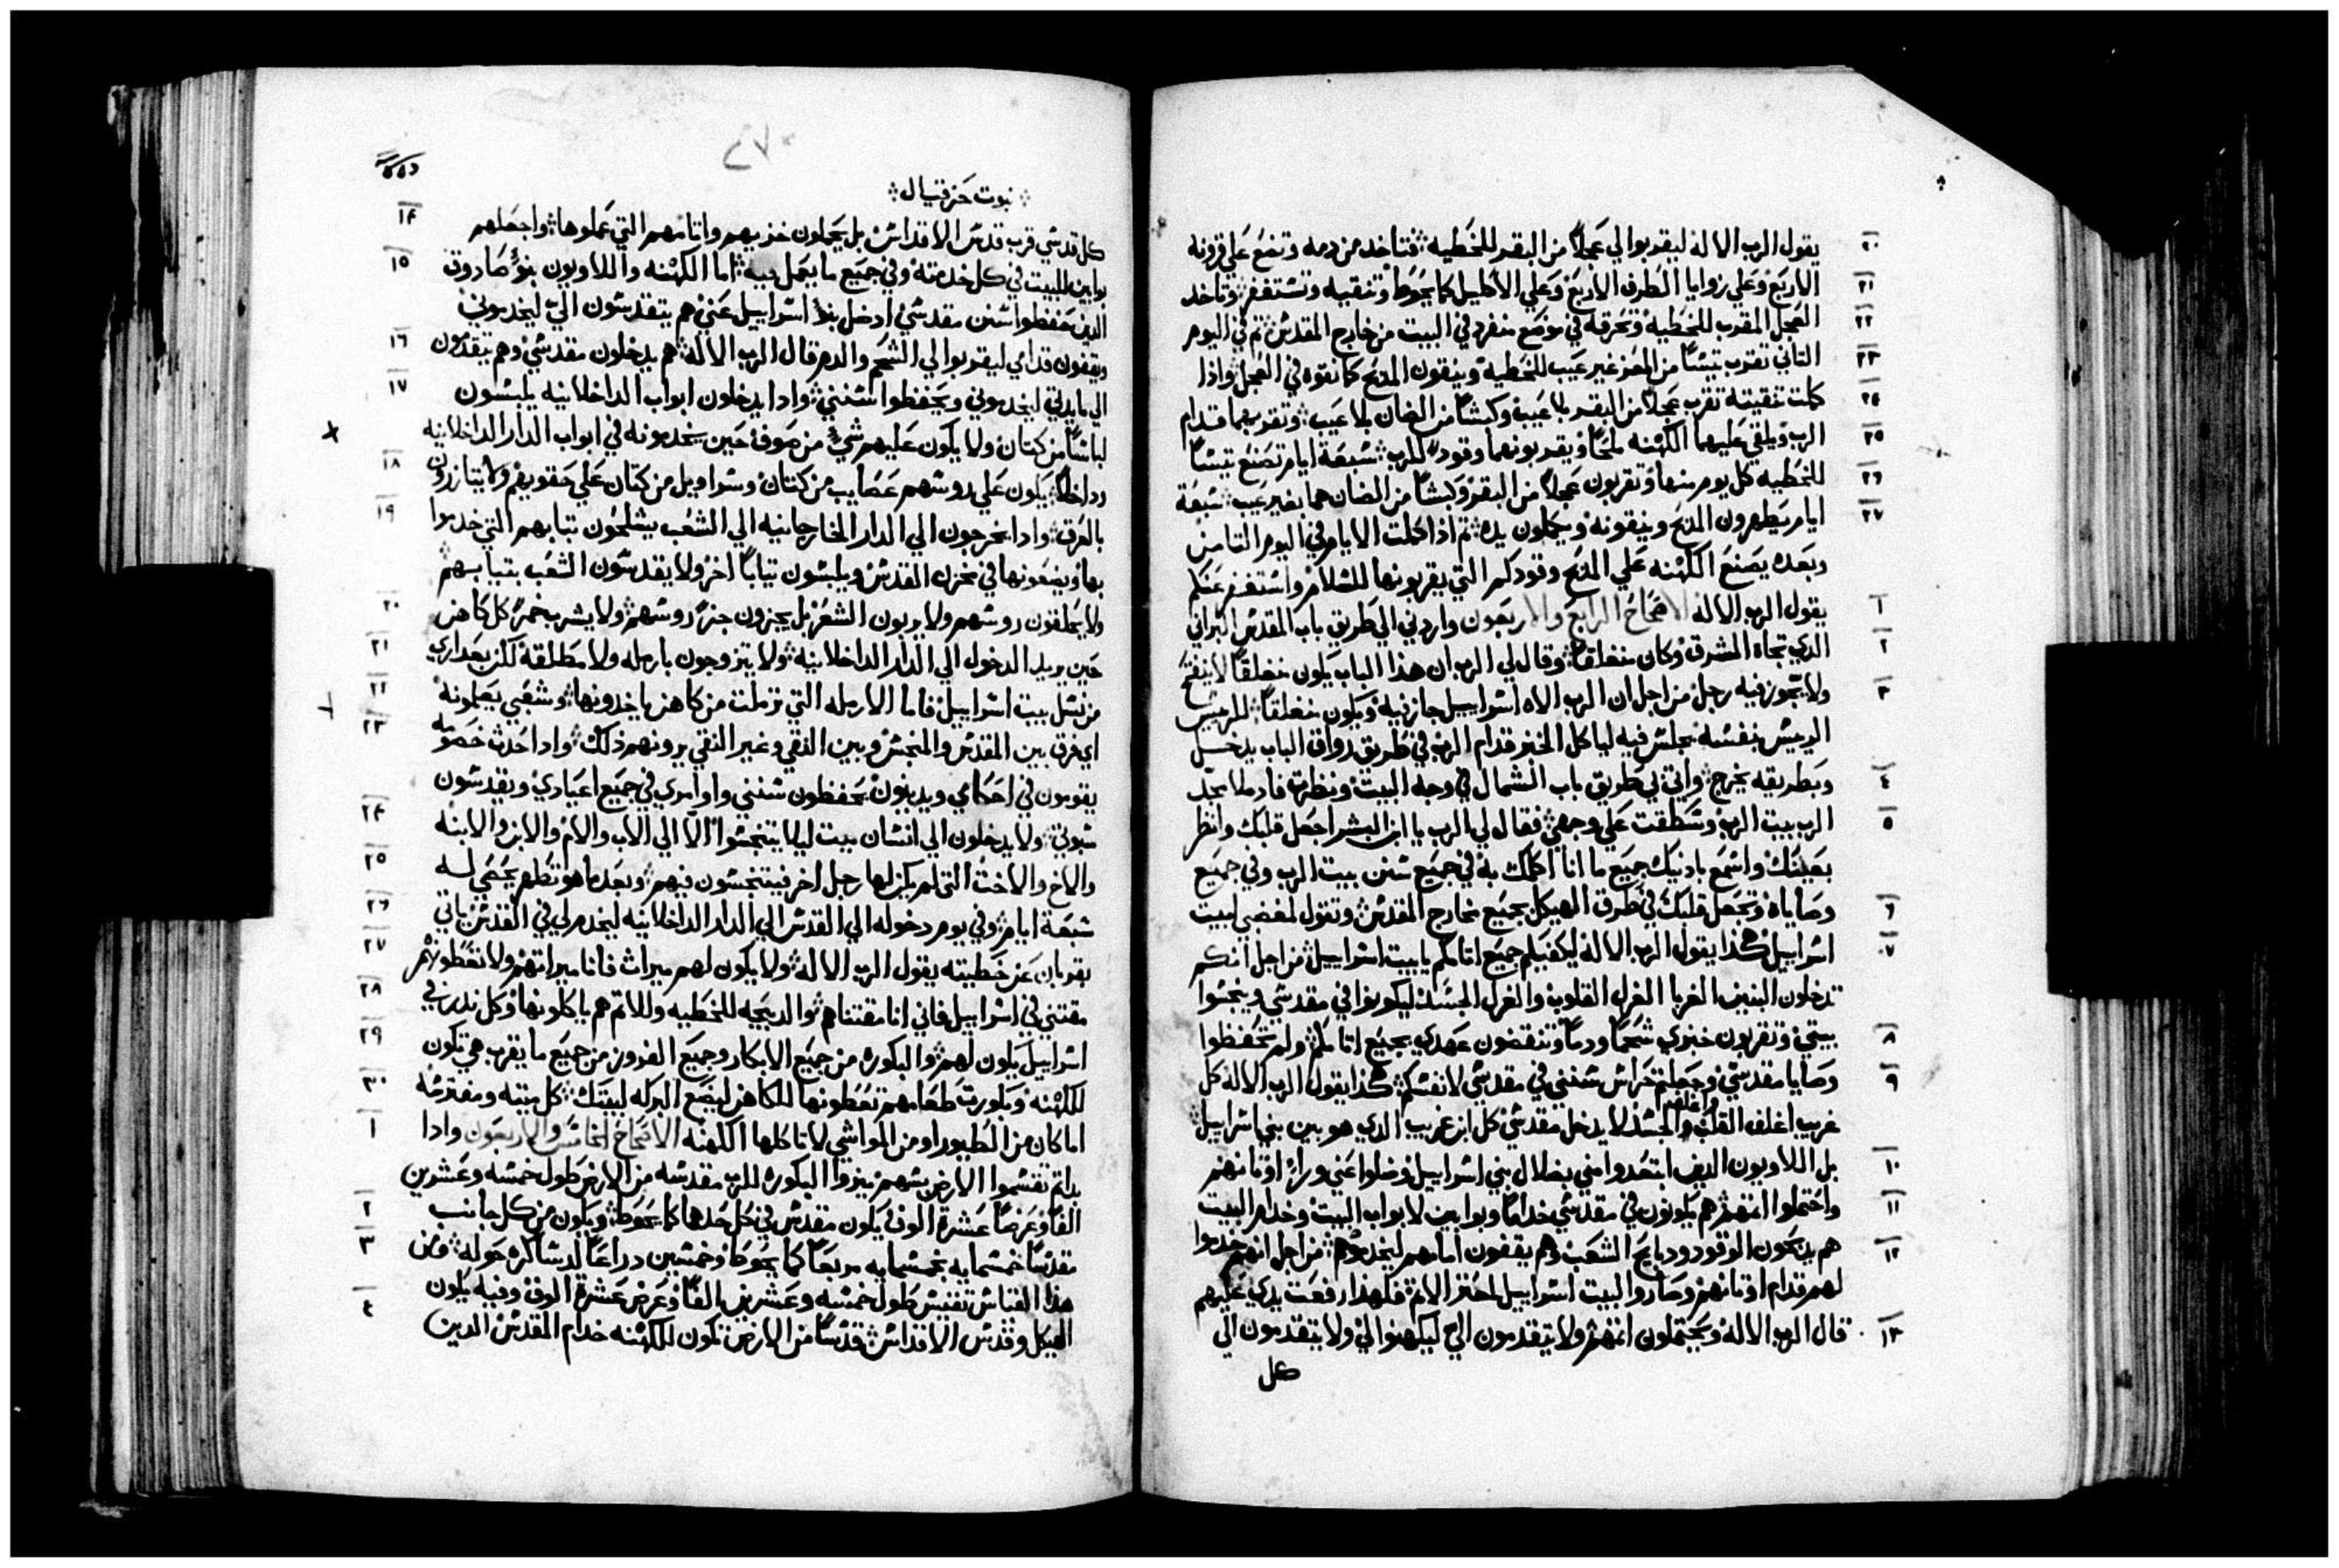 ٢٠ يقول الرب الاله ليقربوا لي عجلاً من البقر للخطيه فتاخد من دمه وتضع علي قرونه
٢١ الاربع وعلي زوايا الطرف الاربع وعلي الاكليل كما يحوط وتنقيه وتستغفر وتاخد
٢٢ العجل المقرب للخطيه وتحرقه في موضع منفرد في البيت من خارج المقدس ثم في اليوم
٢٣ التاني تقرب تيسًا من المعز غير عيب للخطيه وينقون المدبح كما نقوه في العجل واذا
٢٤ كملت تنقيته تقرب عجلاً من البقر بلا عيب وكبشًا من الضان بلا عيب وتقربهما قدام
٢٥ الرب ويلقي عليهما الكهنه ملحًا ويقربونهما وقودًا للرب سبعة ايام تصنع تيسًا
٢٦ للخطيه كل يوم منها وتقربون عجلاً من البقر وكبشًا من الضان هما بغير عيب سبعة
٢٧ ايام يطهرون المدبح وينقونه ويكملون يده ثم اذا كملت الايام في اليوم التامن
وبعده يصنع الكهنه علي المدبح وقودكم التي يقربونها للسلام واستغفر عنكم
١ يقول الرب الاله الاصحاح الرابع والاربعون واردني الي طريق باب المقدس البراني
٢ الدي تجاه المشرق وكان منغلقًا وقال لي الرب ان هذا الباب يكون منغلقًا لا ينفتح
٣ ولا يجوز فيه رجل من اجل ان الرب الاه اسراييل جاز فيه ويكون منغلقًا للرييس
الرييس بنفسه يجلس فيه لياكل الخبز قدام الرب في طريق رواق الباب يدخل
٤ وبطريقه يخرج واتي بي طريق باب الشمال في وجه البيت ونظرت فاد ملا مجد
٥ الرب بيت الرب وسقطت علي وجهي فقال لي الرب يا ابن البشر اجعل قلبك وانظر
بعينك واسمع بادنيك جميع ما انا اكلمك به في جميع سنن بيت الرب وفي جميع
٦ وصاياه وتجعل قلبك في طرق الهيكل بجميع مخارج المقدس وتقول لمغضبي بيت
٧ اسراييل هكذا يقول الرب الاله ليكفيكم جميع اتامكم يا بيت اسراييل من اجل انكم
تدخلون البنين الغربا الغرل القلوب والغرل الجسد ليكونوا في مقدسي وينجسوا
٨ بيتي وتقربون خبزي شحمًا ودمًا وتنقضون عهدي بجميع اتامكم ولم تحفظوا
٩ وصايا مقدسي وجعلتم حراس سنني في مقدسي لانفسكم هكذا يقول الرب الاله كل
غريب اغلف القلب واغلف الجسد لا يدخل مقدسي كل ابن غريب الدي هو بين بني اسراييل
١٠ بل اللاويون الدين ابتعدوا مني بضلال بني اسراييل وضلوا عني ورا اوتانهم
١١ واحتملوا اتمهم هم يكونون في مقدسي خدامًا وبوابين لابواب البيت وخدام البيت
١٢ هم يدبحون الوقود ودبايح الشعب وهم يقفون امامهم ليخدموهم من اجل انهم خدموا
لهم قدام اوتانهم وصاروا لبيت اسراييل الاتم فلهذا رفعت يدي عليهم
١٣ قال الرب الاله ويحتملون اتمهم ولا يتقدمون الي ليكهنوا لي ولا يتقدمون الي
كل
٢٧٠
نبوت حزقيال
١٤ كل قدسي قرب قدس الاقداس بل يحملون خزيهم واتامهم التي عملوها واجعلهم
١٥ بوابين للبيت في كل خدمته وفي جميع ما يعمل فيه اما الكهنه واللاويون بنو صادوق
الدين حفظوا سنن مقدسي اد ضل بنو اسراييل عني هم يتقدمون الي ليخدموني
١٦ ويقفون قدامي ليقربوا لي الشحم والدم قال الرب الاله هم يدخلون مقدسي وهم يتقدمون
١٧ الي مايدتي ليخدموني ويحفظوا سنني وادا يدخلون ابواب الدار الداخلانيه يلبسون
لباسًا من كتان ولا يكون عليهم شيء من صوف حين يخدمونه في ابواب الدار الداخلانيه
١٨ وداخلاً يكون علي روسهم عصايب من كتان وسراويل من كتان علي حقويهم ولا يتازرون
١٩ بالعرق وادا يخرجون الي الدار الخارجانيه الي الشعب يشلحون تيابهم التي خدموا
بها ويضعونها في مخزن المقدس ويلبسون تيابًا اخر ولا يقدسون الشعب بتيابهم
٢٠ ولا يحلقون روسهم ولا يربون الشعر بل يجزون جزًا روسهم ولا يشرب خمرًا كل كاهن
٢١ حين يريد الدخول الي الدار الداخلانيه ولا يتزوجون بارمله ولا مطلقه لكن بعداري
٢٢ من نسل بيت اسراييل فاما الارمله التي ترملت من كاهن ياخدونها وشعبي يعلمونه
٢٣ اي فرق بين المقدس والمنجس وبين النقي وغير النقي يرونهم ذلك وادا حدث خصومه
يقومون في احكامي ويدينون يحفظون سنني واوامري في جميع اعيادي ويقدسون
٢٤ سبوتي ولا يدخلون الي انسان ميت ليلا يتنجسوا الا الي الاب والام والابن والابنه
٢٥ والاخ والاخت التي لم يكن لها رجل اخر فيتنجسون فيهم وبعد ما هو تطهر يحصي له
٢٦ سبعة ايام وفي يوم دخوله الي القدس الي الدار الداخلانيه ليخدم لي في القدس ياتي
٢٧ بقربان عن خطيته يقول الرب الاله ولا يكون لهم ميراث فانا ميراتهم ولا تعطونهم
٢٨ مقتني في اسراييل فاني انا مقتناهم والدبيحه للخطيه وللاتم هم ياكلونها وكل ندر في
٢٩ اسراييل يكون لهم والبكوره من جميع الابكار وجميع الفروز من جميع ما يقرب هي تكون
٣٠ للكهنه وبكورت طعامهم تعطونها للكاهن ليضع البركه لبيتك كل ميته ومفترسه
١ اما كان من الطيور او من المواشي لا تاكلها الكهنه الاصحاح الخامس والاربعون وادا
بداتم تقسموا الارض بسهم ميزوا البكوره للرب مقدسه من الارض طول خمسه وعشرين
٢ الفًا وعرضًا عشرة الوف يكون مقدس في كل حدها كما يحوط ويكون من كل جانب
٣ مقدسًا خمسمايه بخمسمايه مربعًا كما يحوط وخمسين دراعًا حوله ومن
٤ هذا القياس تقيس طول خمسه وعشرين الفًا وعرض عشرة الوف وفيه يكون
الهيكل وقدس الاقداس قدسًا من الارض تكون للكهنه خدام المقدس الدين